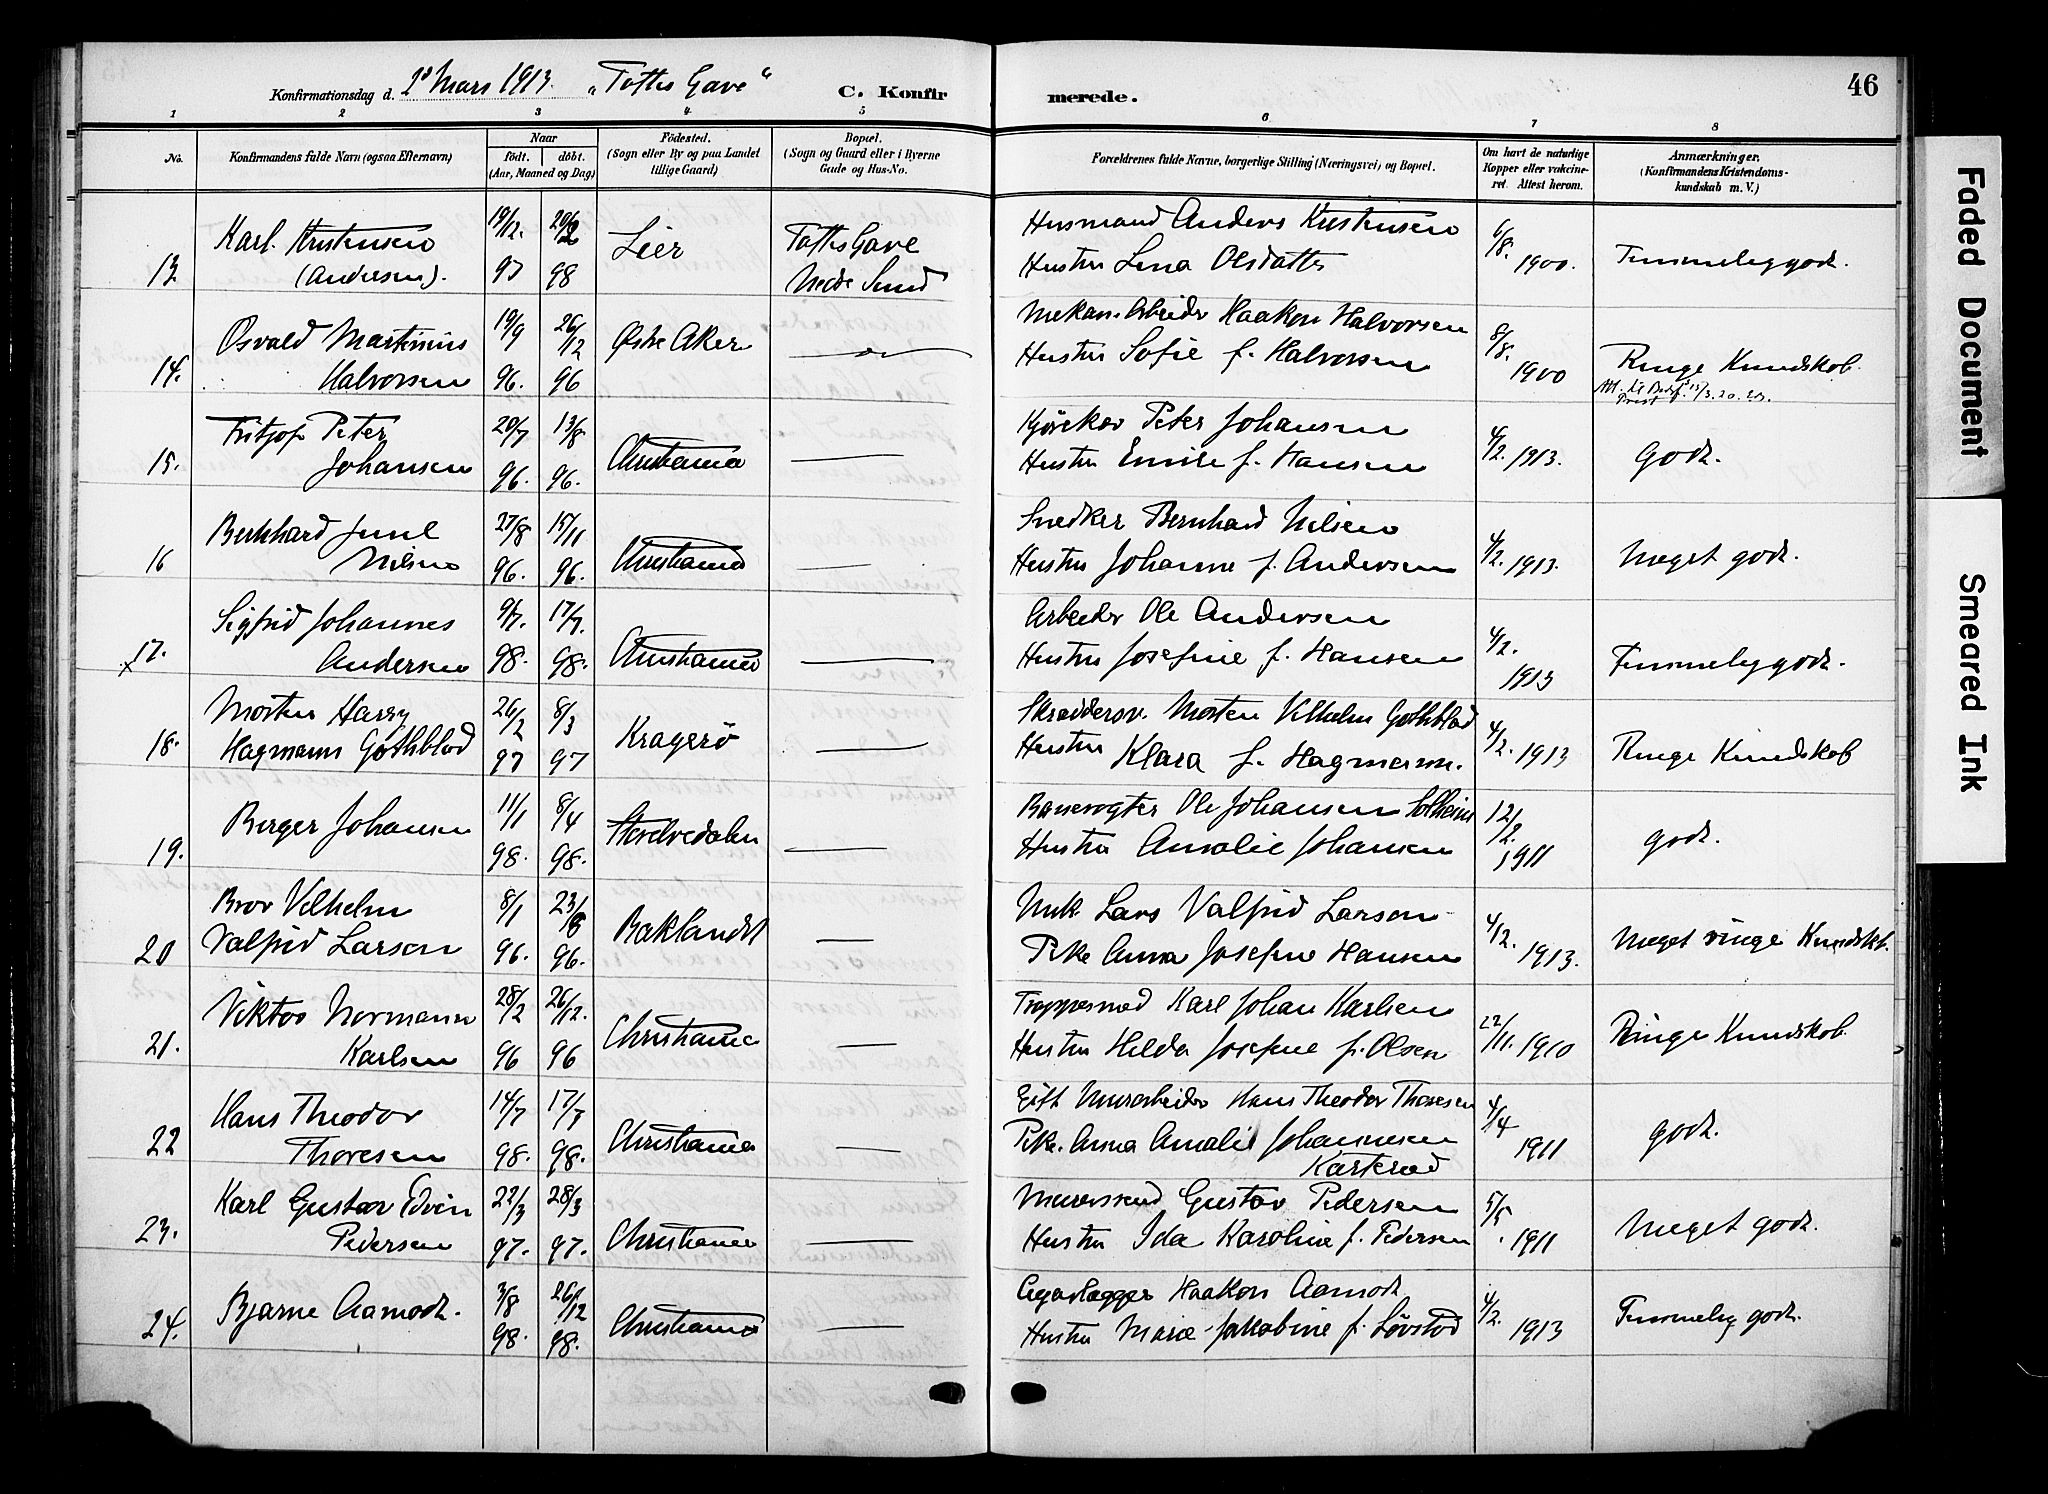 Konfirmationsdag d. 2d Mars 1913. „Toftes Gave“
C. Konfirmerede.
46
1 2 3 4 5 6 7 8
No.
Konfirmandens fulde Navn (ogsaa Efternavn)
Naar
født. døbt.
(Aar, Maaned og Dag)
Födested.
(Sogn eller By og paa Landet
tillige Gaard)
Bopæl.
(Sogn og Gaard eller i Byerne
Gade og Hus-No.
Forældrenes fulde Navne, borgerlige Stilling (Næringsvei) og Bopæl.
Om havt de naturlige
Kopper eller vakcine-
ret. Attest herom.
Anmærkninger.
(Konfirmandens Kristendoms-
kundskab m. V.)
13 Karl Kristensen 19/12. 20/2 Lier Toftes Gave Husmand Anders Kristensen 6/8. 1900. Temmelig godt.
(Andersen). 97 98 Nedre Sund Hustru Lina Olsdatter
14. Osvald Martinius 19/9 26/12 Østre Aker Mekan. Arbeider Haakon Halvorsen 8/8. 1900 Ringe Kundskab.
Halvorsen 96. 96 Hustru Sofie f. Halvorsen
15. Fritjof Peter 20/7 13/8 Christiania Kjørekar Peter Johansen 4/2. 1913. Godt.
Johansen 96. 96. Hustru Emilie f. Hansen
16 Bernhard Juul 27/8 15/11 Christiania Snedker Bernhard Nilsen 4/2. 1913. Meget godt.
Nilsen 96. 96. Hustru Johanne f. Andersen
x17. Sigfrid Johannes 9/7. 17/7. Christiania Arbeider Ole Andersen 4/2. 1913 Temmelig godt.
Andersen 98. 98. Hustru Josefine f. Hansen
18. Morten Harry 26/2 8/3 Kragerö Skræddersv. Morten Vilhelm Gothblad 4/2. 1913 Ringe Kundskab
Hagmann Gothblad 97 97 Hustru Klara f. Hagmann.
19. Berger Johansen 11/1 8/4 Storelvedalen Banevogter Ole Johansen Solheim 12/2. 1911 godt.
98. 98. Hustru Amalie Johansen
20 Bror Vilhelm 8/1 23/8 Baklandet Lars Valfrid Larson 4/2. 1913. Meget ringe Kundskb.
Valfrid Larson 96. 96. Pike Anna Josefine Hansen
21. Viktor Normann 28/2 26/12. Christiania Karl Johan Karlsen 22/11. 1910 Ringe Kundskab
Karlsen 96 96 Hustru Hilda Josefine f. Olsen
22 Hans Theodor 14/7 17/7 Christiania Gift Murarbeider Hans Theodor Thoresen 4/4 1911 godt.
Thoresen 98. 98. Pike. Anna Amalie Johannesen
23. Karl Gustav Edvin 22/3 28/3 Christiania Murersvend Gustav Pedersen 5/5. 1911 Meget godt.
Pedersen 97. 97. Hustru Ida Karoline f. Pedersen
24. Bjarne Aamodt. 3/8 26/12 Christiania Haakon Aamodt 4/2. 1913 Temmelig godt.
98. 98. Hustru Marie Jakobine f. Lövstad
Faded Document
Smeared Ink